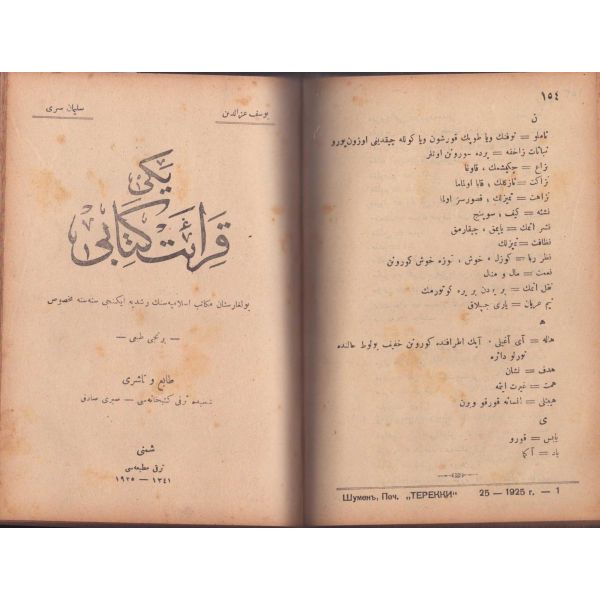 يوسف عزالدين
سليمان سری
يكی
قرائت كتابی
بولغارستان مكاتب اسلاميه سنك رشديه ايكنجی سنه سنه مخصوص
— برنجی طبعی —
طابع و ناشری
شمنيده ترقی كتبخانه سی — صبری صادق
شمنی
ترقی مطبعه سی
١٣٤١ — ١٩٢٥
١٥٤
ن
ناملو = توفنك ويا طوپك قورشون ويا كوله چيقديغی اوزون بورو
نباتات زاحفه = يرده سورونن اوتلر
نزاع = چكيشمك ، قاوغا
نزاكت = نازكلك ، قابا اولماما
نزاهت = تميزلك ، قصورسز اولما
نشئه = كيف ، سوينج
نشر ايتمك = يايمق ، چيقارمق
نظافت = تميزلك
نظر ربا = كوزل ، خوش ، كوزه خوش كورونن
نعمت = مال و منال
نقل ايتمك = بر يردن بر يره كوتورمك
نيم عريان = ياری چيپلاق
ه
هاله = آی آغيلی ، آيك اطرافنده كورونن خفيف بولوط حالنده
نورلو دائره
هدف = نشان
همت = غيرت ايتمه
هيبتلی = انسانه قورقو ويرن
ی
يابس = قورو
ياد = آكما
Шуменъ, Печ. „ТЕРЕККИ" 25 — 1925 г. — 1